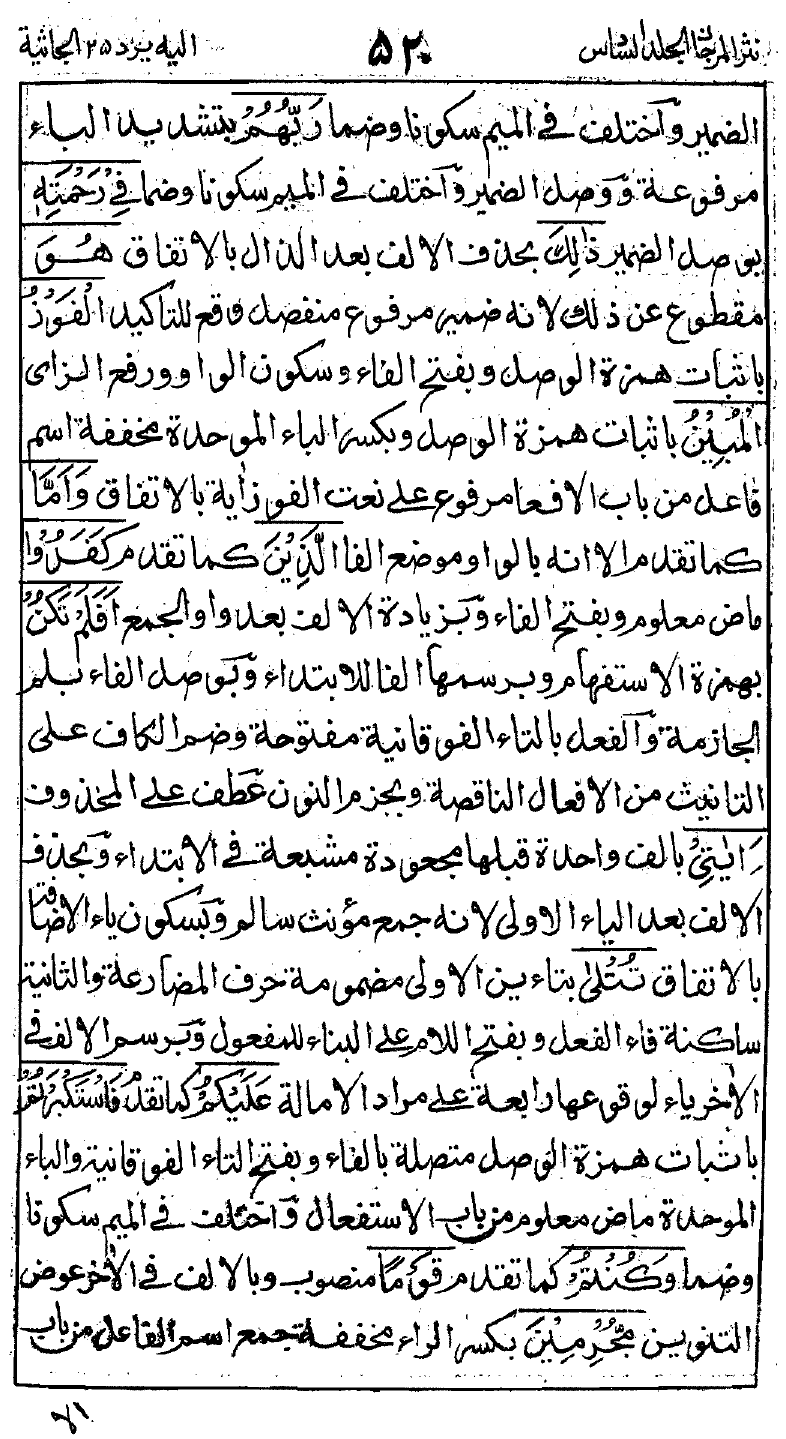 نثر المرجان الجلد السادس ٥٢٠ اليه يرد ٢٥ الجاثية
الضمير وٓاختلف فى الميم سكونا وضما رَبُّهُمُ بتشديد الباء
مرفوعة وٓوصل الضمير وٓاختلف فى الميم سكونا وضما فِىْ رَحْمَتِهٖ
بوصل الضمير ذٰلِكَ بحذف الالف بعد الذال بالاتفاق هُوَ
مقطوع عن ذلك لانه ضمير مرفوع منفصل وقع للتاكيد الْفَوْزُ
باثبات همزة الوصل وبفتح الفاء وسكون الواو ورفع الزاى
الْمُبِيْنُ باثبات همزة الوصل وبكسر الباء الموحدة مخففة اسم
فاعل من باب الافعا مرفوع على نعت الفوز اٰية بالاتفاق وَاَمَّا
كما تقدم الا انه بالواو موضع الفا الَّذِيْنَ كما تقدم كَفَرُوْا
ماض معلوم وبفتح الفاء وٓبزيادة الالف بعد واو الجمع اَفَلَمْ تَكُنْ
بهمزة الاستفهام وبرسمها الفا للابتداء وٓبوصل الفاء بلم
الجازمة وٓالفعل بالتاء الفوقانية مفتوحة وضم الكاف على
التانيث من الافعال الناقصة وبجزم النون عطف على المحذوف
اٰيٰتِىْ بالف واحدة قبلها مجعودة مشبعة فى الابتداء وٓبحذف
الالف بعد الياء الاولى لانه جمع مؤنث سالم وٓبسكون ياء الاضافة
بالاتفاق تُتْلٰى بتاءين الاولى مضمومة حرف المضارعة والثانية
ساكنة فاء الفعل وبفتح اللام على البناء للمفعول وٓبرسم الالف فى
الاٰخر ياء لوقوعها رابعة على مراد الامالة عَلَيْكُمْ كما تقدم فَاسْتَكْبَرْتُمْ
باثبات همزة الوصل متصلة بالفاء وبفتح التاء الفوقانية والباء
الموحدة ماض معلوم من باب الاستفعال وٓاختلف فى الميم سكونا
وضما وَكُنْتُمْ كما تقدم قَوْمًا منصوب وبالالف فى الاٰخر عوض
التنوين مُجْرِمِيْنَ بكسر الراء مخففة جمع اسم الفاعل من باب